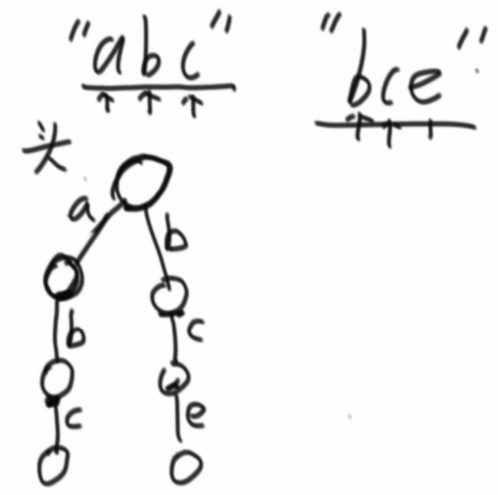 "abc" "bce"
头
a b
b c
c e